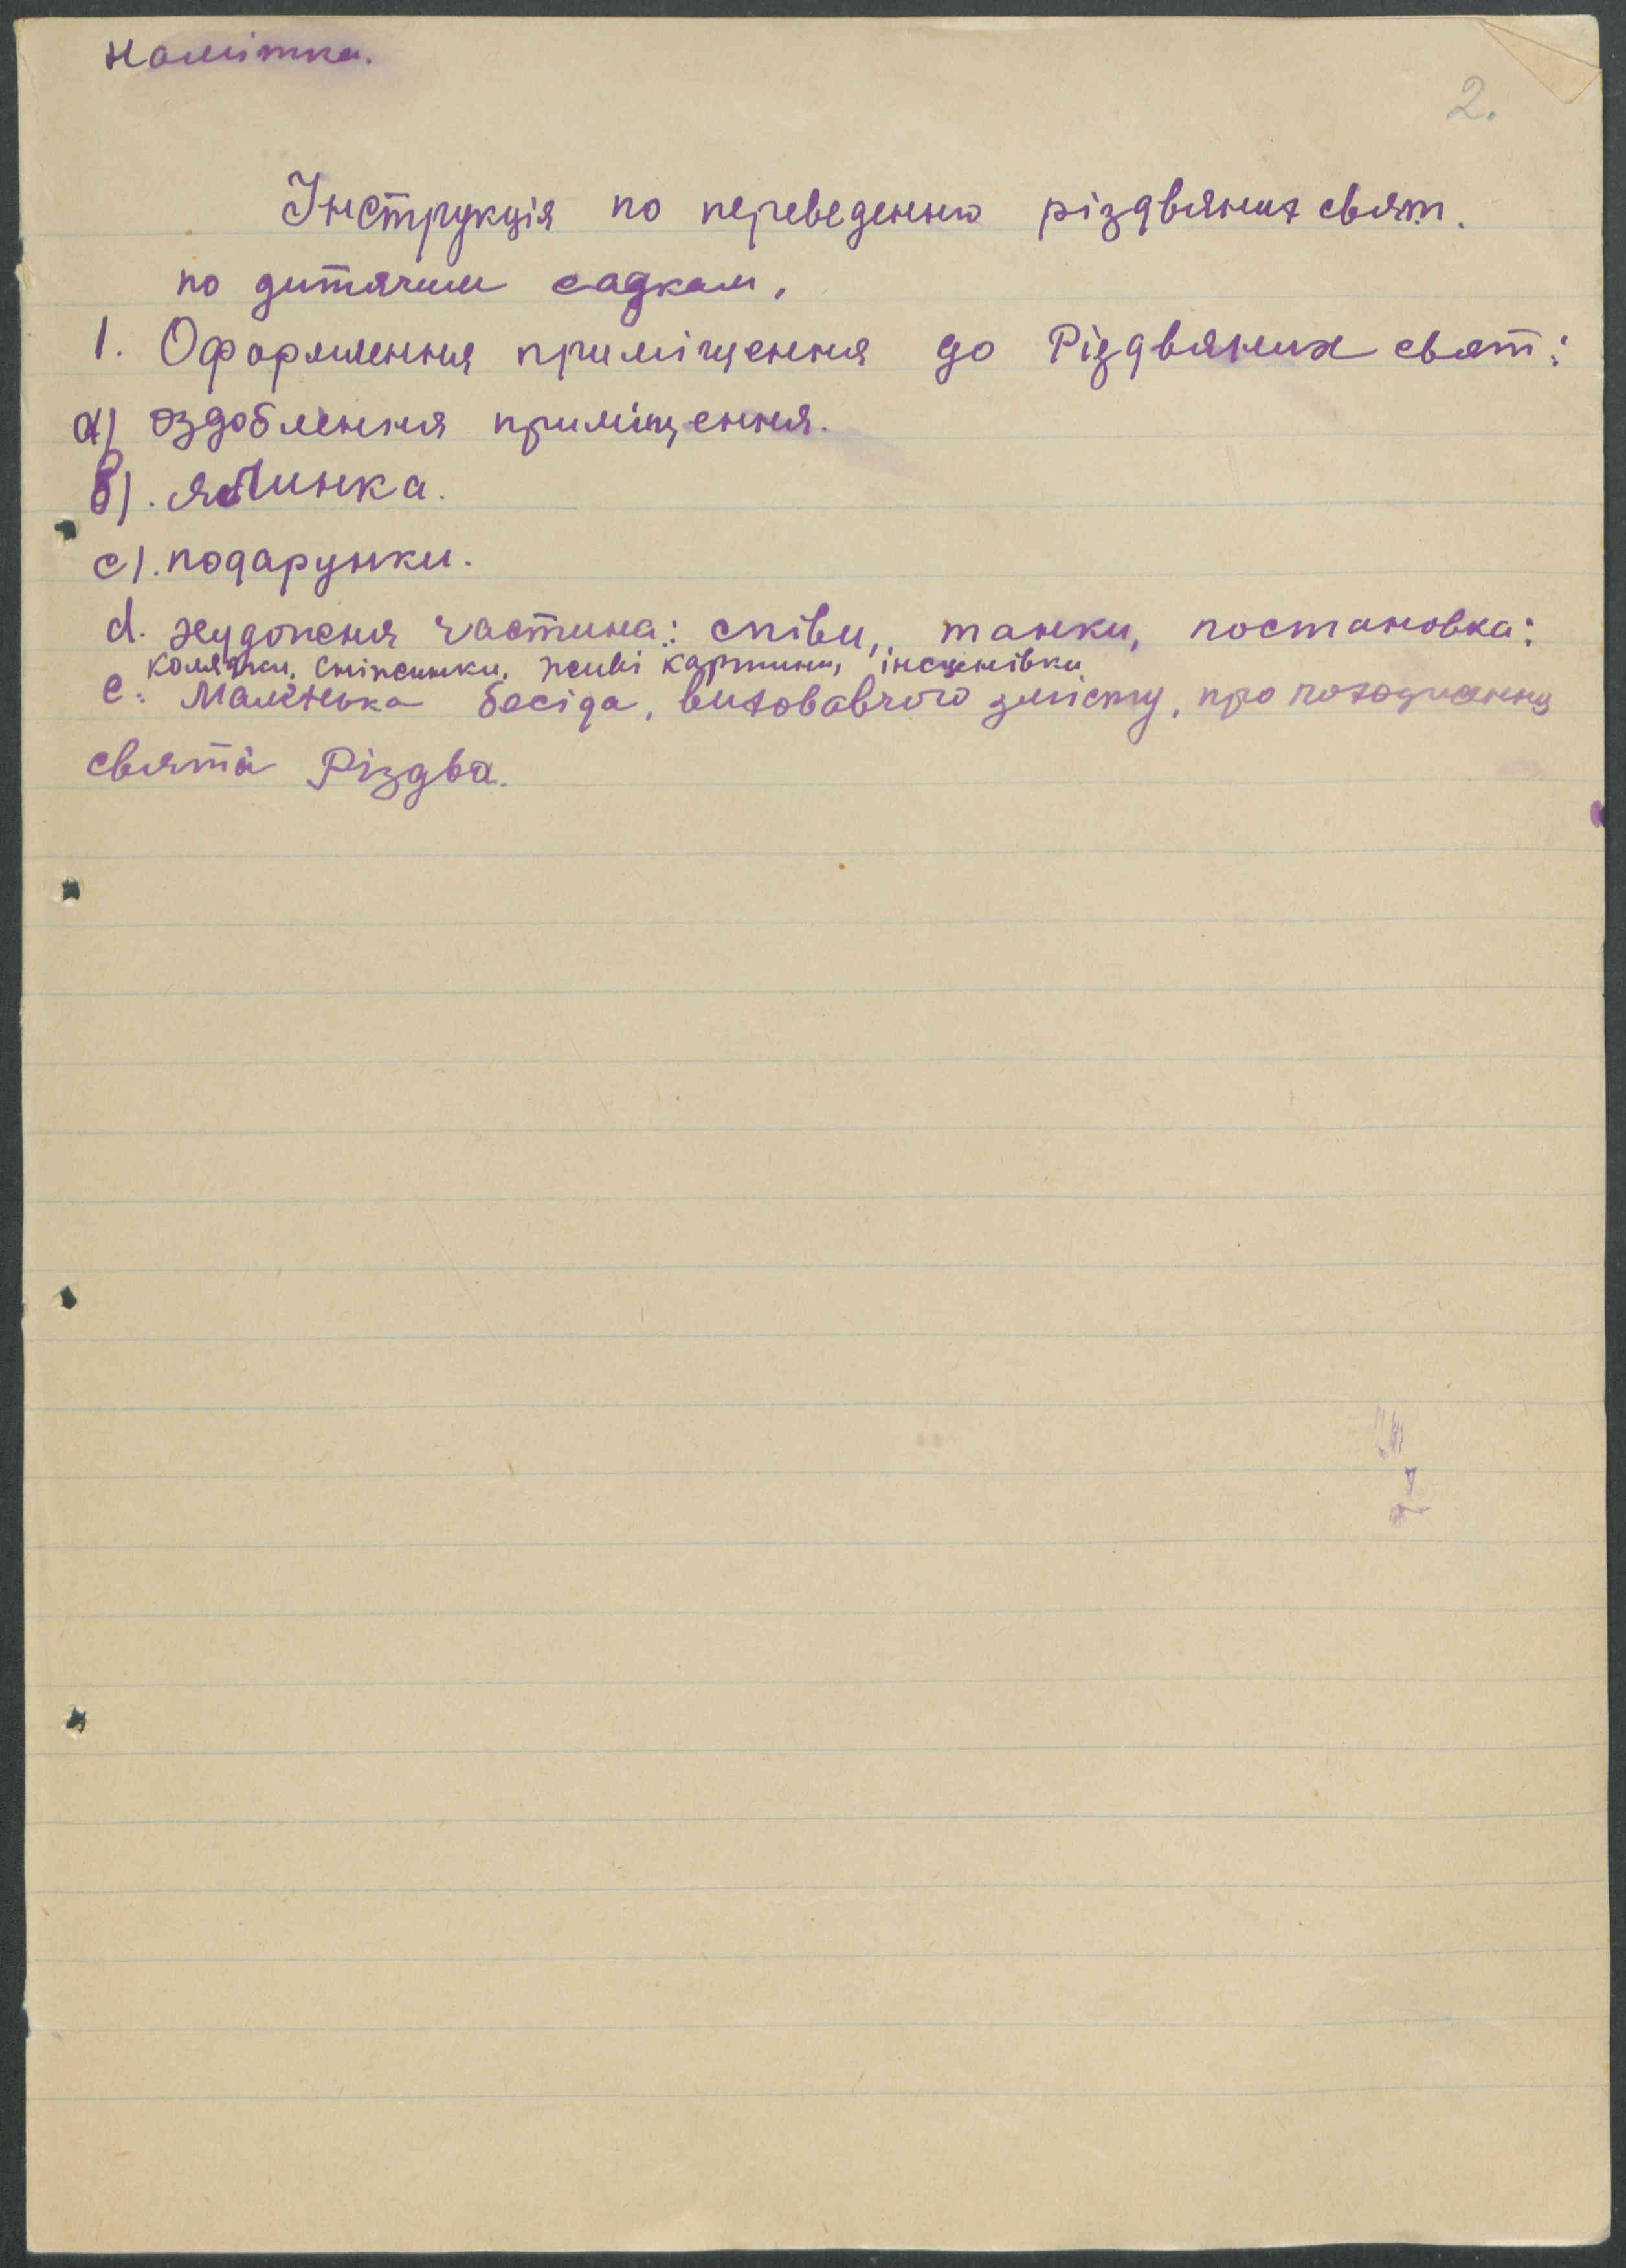 Намітка.
2.
Інструкція по переведенню різдвяних свят.
по дитячим садкам.
1. Оформлення приміщення до Різдвяних свят:
а) оздоблення приміщення.
б). ялинка.
с). подарунки.
d. художня частина: співи, танки, постановка:
колядки, сніжинки, живі картини, інсценівки
е. Маленька бесіда, виховавчого змісту, про походження
свята Різдва.